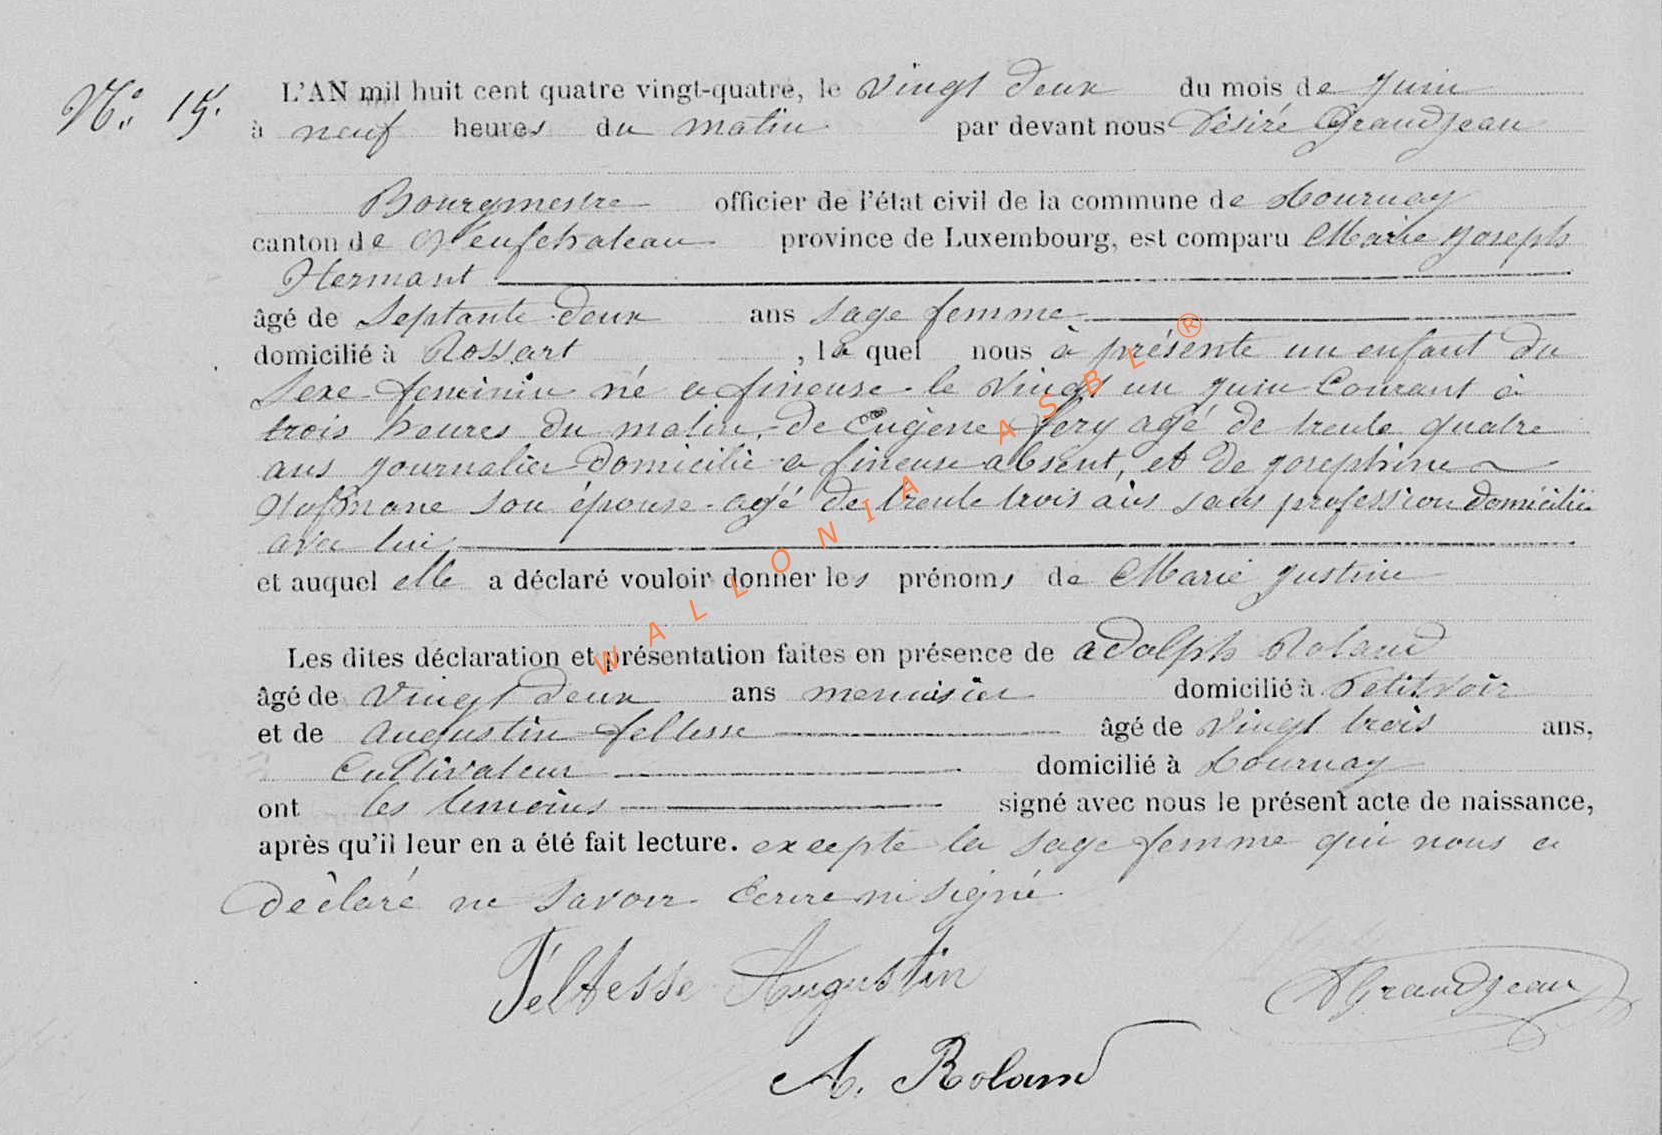 N.º 15.
L'AN mil huit cent quatre vingt-quatre, le vingt deux du mois de juin
à neuf heures du matin par devant nous Désiré Grandjean
Bourgmestre officier de l'état civil de la commune de Tournay
canton de Neufchateau province de Luxembourg, est comparu Marie Joseph
Hermant
âgé de Septante deux ans sage femme
domicilié à Rossart , la quel nous à présente un enfant du
Sexe feminin né a fineuse le vingt un juin Courant à
trois heures du matin, de Eugène fery agé de trente quatre
ans journalier domicilié a fineuse absent, et de josephine
Hofmane son épouse agé de trente trois ans sans profession domicilié
avec lui
et auquel elle a déclaré vouloir donner les prénoms de Marie justine
Les dites déclaration et présentation faites en présence de adolph Roland
âgé de vingt deux ans menuisier domicilié à Petitvoir
et de augustin feltesse âgé de vingt trois ans,
Cultivateur domicilié à Tournay
ont les temoins signé avec nous le présent acte de naissance,
après qu'il leur en a été fait lecture. excepte la sage femme qui nous a
déclaré ne savoir Ecrire ni signé
Feltesse Augustin
DGrandjean
A. Roland
WALLONIA ASBL ®